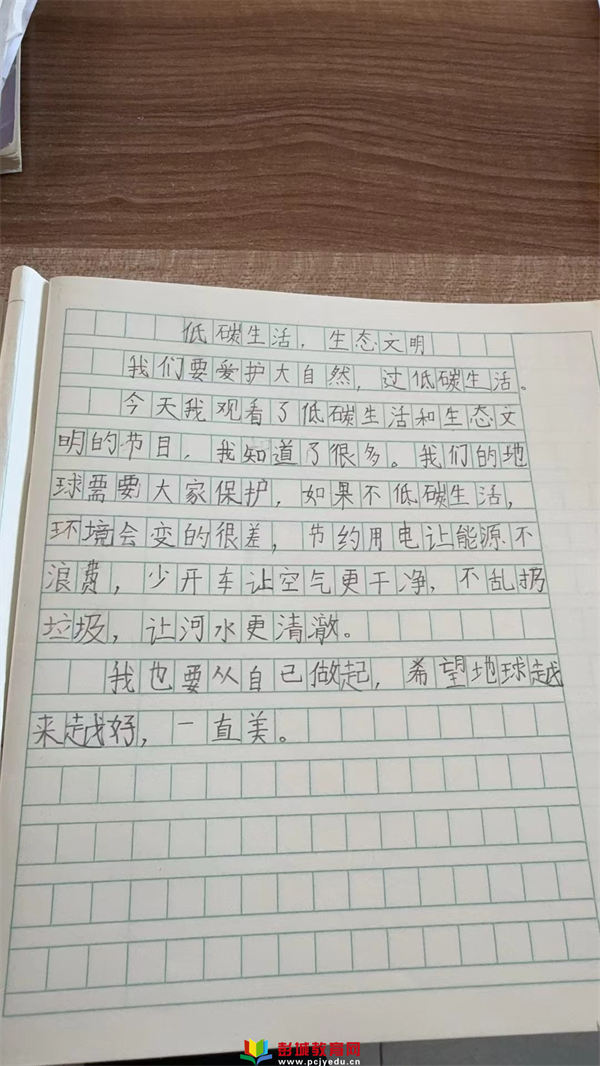 低碳生活，生态文明
我们要爱护大自然，过低碳生活。
今天我观看了低碳生活和生态文
明的节目，我知道了很多。我们的地
球需要大家保护，如果不低碳生活，
环境会变的很差，节约用电让能源不
浪费，少开车让空气更干净，不乱扔
垃圾，让河水更清澈。
我也要从自己做起，希望地球越
来越好，一直美。
彭城教育网
www.pcjyedu.cn